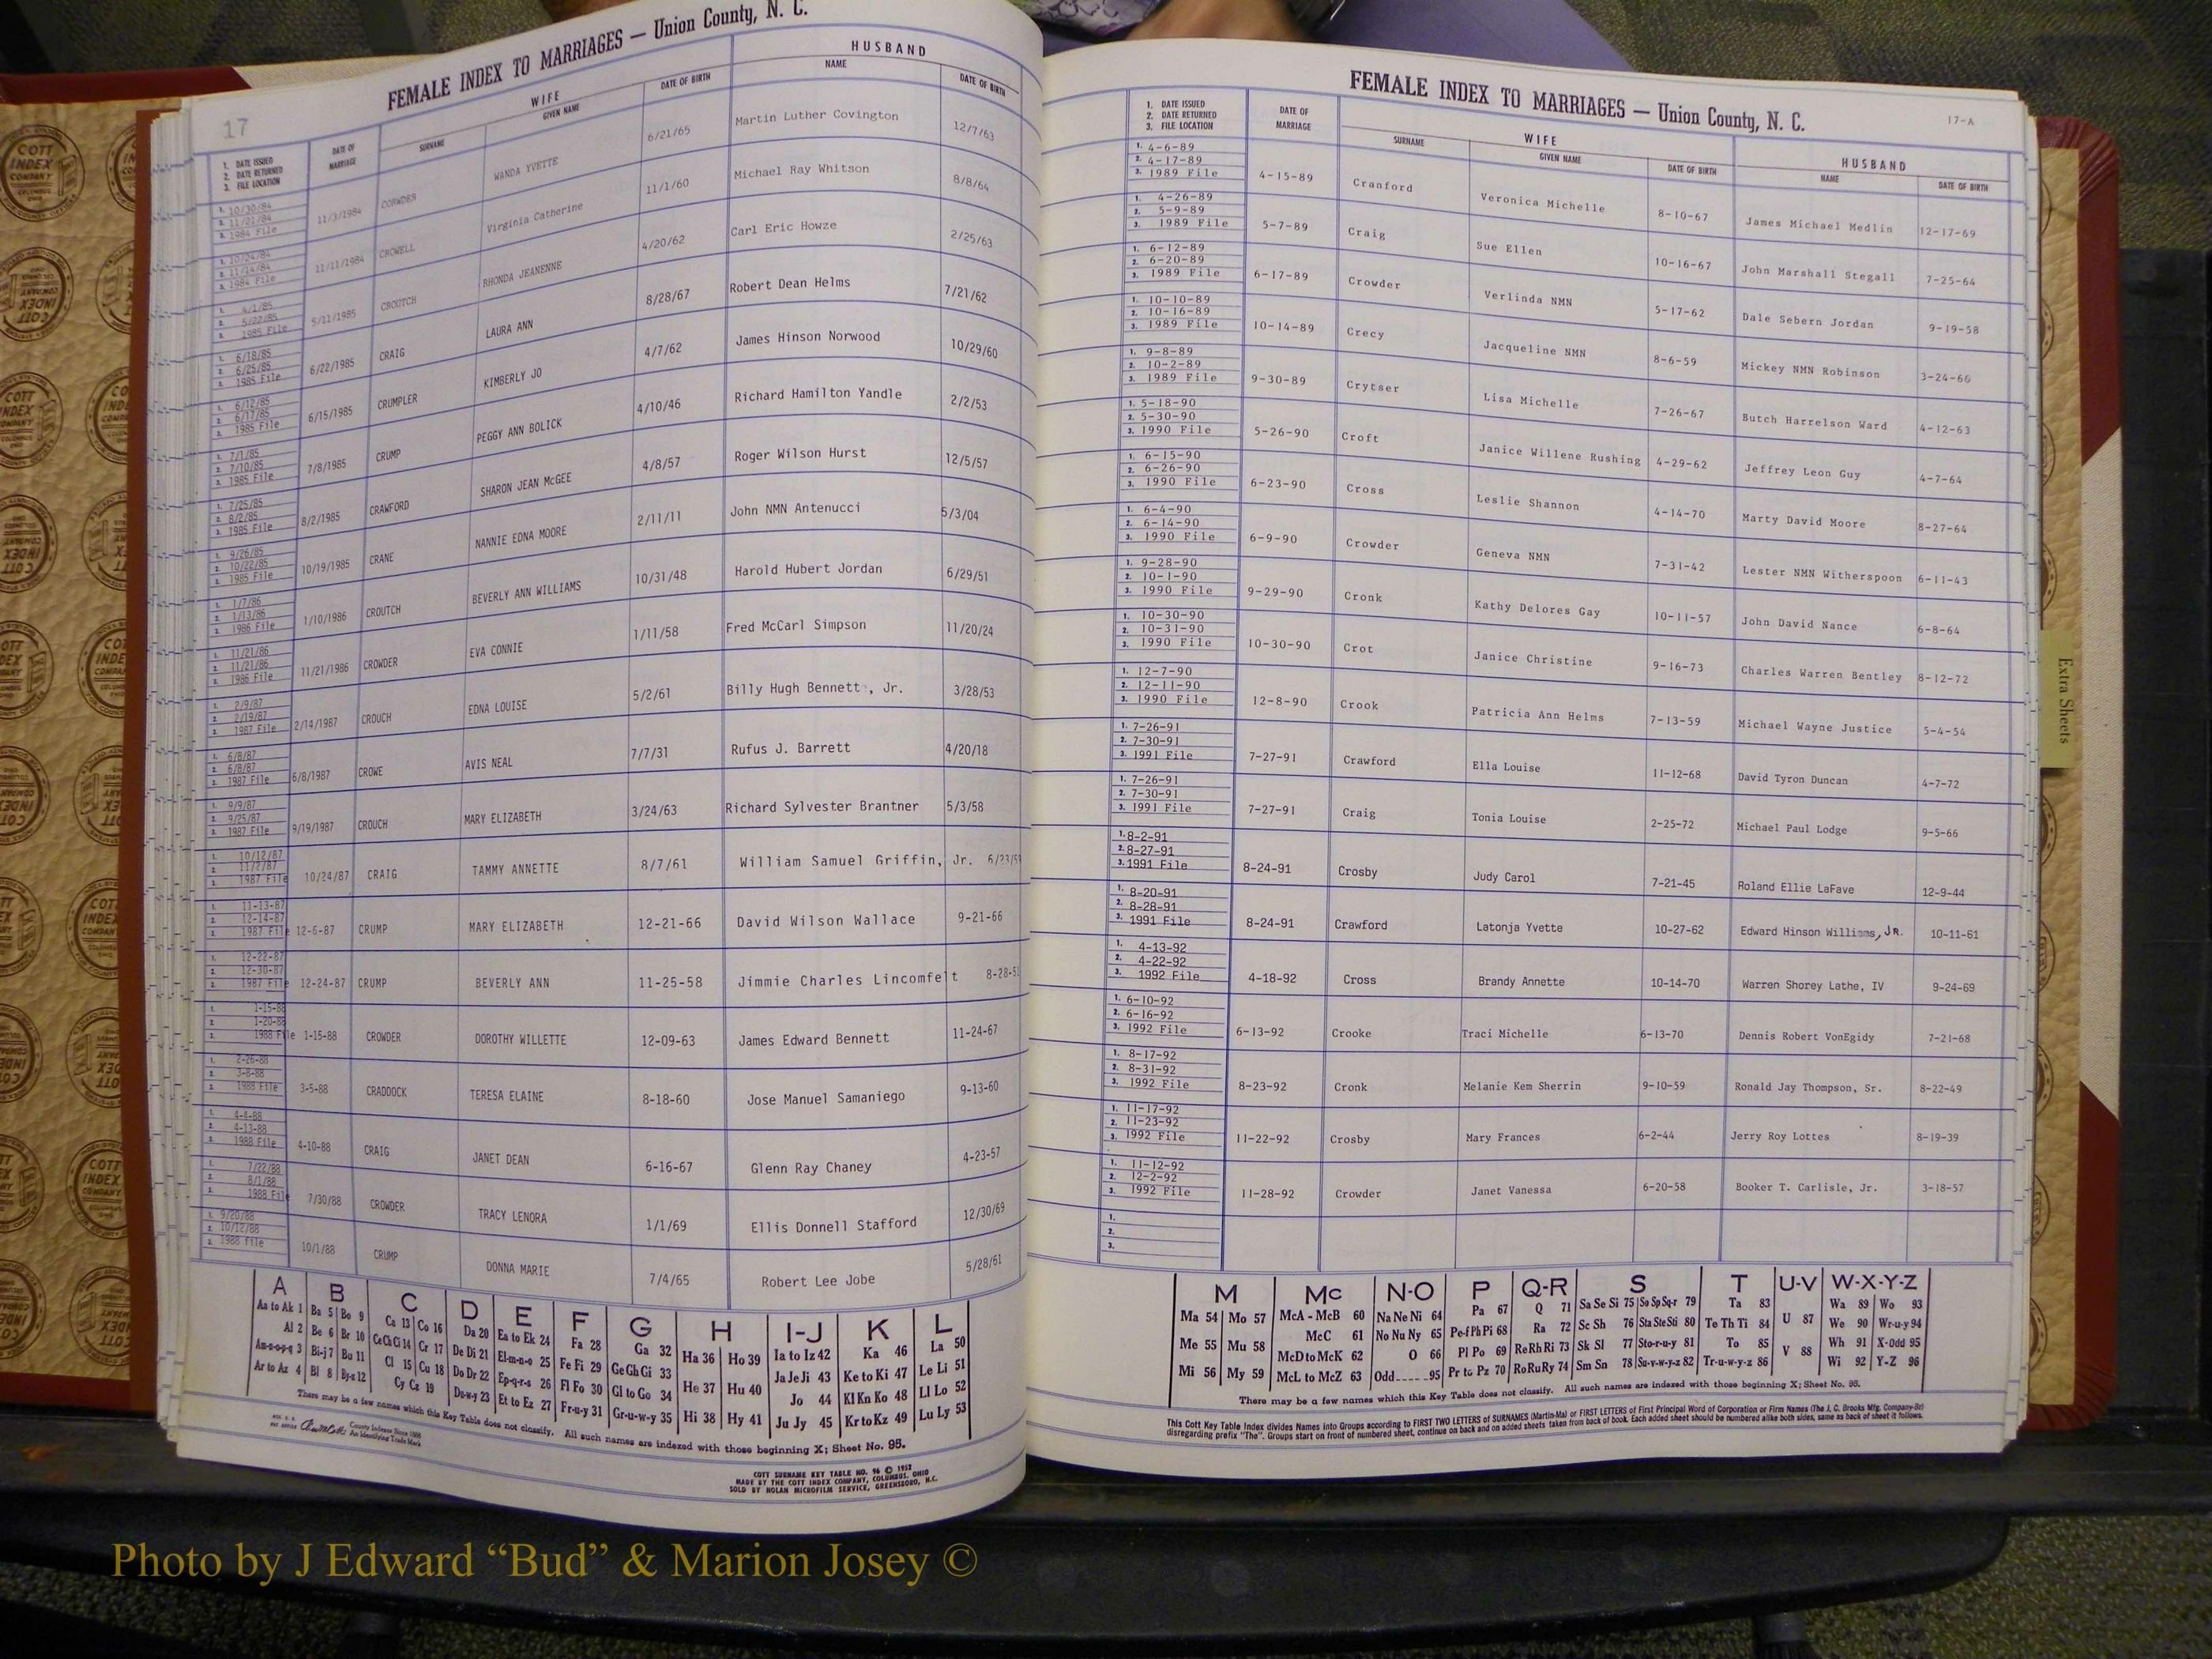 17
FEMALE INDEX TO MARRIAGES — Union County, N. C.
1. DATE ISSUED 2. DATE RETURNED 3. FILE LOCATION
DATE OF MARRIAGE
WIFE
SURNAME GIVEN NAME DATE OF BIRTH
HUSBAND
NAME DATE OF BIRTH
1. 10/30/84 2. 11/21/84 3. 1984 File 11/3/1984 CORWDER WANDA YVETTE 6/21/65 Martin Luther Covington 12/7/63
1. 10/24/84 2. 11/14/84 3. 1984 File 11/11/1984 CROWELL Virginia Catherine 11/1/60 Michael Ray Whitson 8/8/64
1. 4/1/85 2. 5/22/85 3. 1985 File 5/11/1985 CROUTCH RHONDA JEANENNE 4/20/62 Carl Eric Howze 2/25/63
1. 6/18/85 2. 6/25/85 3. 1985 File 6/22/1985 CRAIG LAURA ANN 8/28/67 Robert Dean Helms 7/21/62
1. 6/12/85 2. 6/17/85 3. 1985 File 6/15/1985 CRUMPLER KIMBERLY JO 4/7/62 James Hinson Norwood 10/29/60
1. 7/1/85 2. 7/10/85 3. 1985 File 7/8/1985 CRUMP PEGGY ANN BOLICK 4/10/46 Richard Hamilton Yandle 2/2/53
1. 7/25/85 2. 8/2/85 3. 1985 File 8/2/1985 CRAWFORD SHARON JEAN McGEE 4/8/57 Roger Wilson Hurst 12/5/57
1. 9/26/85 2. 10/22/85 3. 1985 File 10/19/1985 CRANE NANNIE EDNA MOORE 2/11/11 John NMN Antenucci 5/3/04
1. 1/7/86 2. 1/13/86 3. 1986 File 1/10/1986 CROUTCH BEVERLY ANN WILLIAMS 10/31/48 Harold Hubert Jordan 6/29/51
1. 11/21/86 2. 11/21/86 3. 1986 File 11/21/1986 CROWDER EVA CONNIE 1/11/58 Fred McCarl Simpson 11/20/24
1. 2/9/87 2. 2/19/87 3. 1987 File 2/14/1987 CROUCH EDNA LOUISE 5/2/61 Billy Hugh Bennett, Jr. 3/28/53
1. 6/8/87 2. 6/8/87 3. 1987 File 6/8/1987 CROWE AVIS NEAL 7/7/31 Rufus J. Barrett 4/20/18
1. 9/9/87 2. 9/25/87 3. 1987 File 9/19/1987 CROUCH MARY ELIZABETH 3/24/63 Richard Sylvester Brantner 5/3/58
1. 10/12/87 2. 11/2/87 3. 1987 File 10/24/87 CRAIG TAMMY ANNETTE 8/7/61 William Samuel Griffin, Jr. 6/23/5
1. 11-13-87 2. 12-14-87 3. 1987 File 12-6-87 CRUMP MARY ELIZABETH 12-21-66 David Wilson Wallace 9-21-66
1. 12-22-87 2. 12-30-87 3. 1987 File 12-24-87 CRUMP BEVERLY ANN 11-25-58 Jimmie Charles Lincomfelt 8-28-5
1. 1-15-88 2. 1-20-88 3. 1988 File 1-15-88 CROWDER DOROTHY WILLETTE 12-09-63 James Edward Bennett 11-24-67
1. 2-26-88 2. 3-8-88 3. 1988 File 3-5-88 CRADDOCK TERESA ELAINE 8-18-60 Jose Manuel Samaniego 9-13-60
1. 4-4-88 2. 4-13-88 3. 1988 File 4-10-88 CRAIG JANET DEAN 6-16-67 Glenn Ray Chaney 4-23-57
1. 7/22/88 2. 8/1/88 3. 1988 File 7/30/88 CROWDER TRACY LENORA 1/1/69 Ellis Donnell Stafford 12/30/69
1. 9/20/88 2. 10/12/88 3. 1988 File 10/1/88 CRUMP DONNA MARIE 7/4/65 Robert Lee Jobe 5/28/61
A B C D E F G H I-J K L
Aa to Ak 1 Ba 5 Bo 9 Ca 13 Co 16 Da 20 Ea to Ek 24 Fa 28 Ga 32 Ha 36 Ho 39 Ia to Iz 42 Ka 46 La 50
Al 2 Be 6 Br 10 Ce Ch Ci 14 Cr 17 De Di 21 El-m-n-o 25 Fe Fi 29 Ge Gh Gi 33 He 37 Hu 40 Ja Je Ji 43 Ke to Ki 47 Le Li 51
Am-n-o-p-q 3 Bi-j 7 Bu 11 Cl 15 Cu 18 Do Dr 22 Ep-q-r-s 26 Fl Fo 30 Gl to Go 34 Hi 38 Hy 41 Jo 44 Kl Kn Ko 48 Ll Lo 52
Ar to Az 4 Bl 8 By-z 12 Cy Cz 19 Du-w-y 23 Et to Ez 27 Fr-u-y 31 Gr-u-w-y 35 Ju Jy 45 Kr to Kz 49 Lu Ly 53
There may be a few names which this Key Table does not classify. All such names are indexed with those beginning X; Sheet No. 95.
County Indexes Since 1888
An Identifying Trade Mark
COTT SURNAME KEY TABLE NO. 96 © 1952
MADE BY THE COTT INDEX COMPANY, COLUMBUS, OHIO
SOLD BY NOLAN MICROFILM SERVICE, GREENSBORO, N.C.
FEMALE INDEX TO MARRIAGES — Union County, N. C.
17-A
1. DATE ISSUED 2. DATE RETURNED 3. FILE LOCATION
DATE OF MARRIAGE
WIFE
SURNAME GIVEN NAME DATE OF BIRTH
HUSBAND
NAME DATE OF BIRTH
1. 4-6-89 2. 4-17-89 3. 1989 File 4-15-89 Cranford Veronica Michelle 8-10-67 James Michael Medlin 12-17-69
1. 4-26-89 2. 5-9-89 3. 1989 File 5-7-89 Craig Sue Ellen 10-16-67 John Marshall Stegall 7-25-64
1. 6-12-89 2. 6-20-89 3. 1989 File 6-17-89 Crowder Verlinda NMN 5-17-62 Dale Sebern Jordan 9-19-58
1. 10-10-89 2. 10-16-89 3. 1989 File 10-14-89 Crecy Jacqueline NMN 8-6-59 Mickey NMN Robinson 3-24-60
1. 9-8-89 2. 10-2-89 3. 1989 File 9-30-89 Crytser Lisa Michelle 7-26-67 Butch Harrelson Ward 4-12-63
1. 5-18-90 2. 5-30-90 3. 1990 File 5-26-90 Croft Janice Willene Rushing 4-29-62 Jeffrey Leon Guy 4-7-64
1. 6-15-90 2. 6-26-90 3. 1990 File 6-23-90 Cross Leslie Shannon 4-14-70 Marty David Moore 8-27-64
1. 6-4-90 2. 6-14-90 3. 1990 File 6-9-90 Crowder Geneva NMN 7-31-42 Lester NMN Witherspoon 6-11-43
1. 9-28-90 2. 10-1-90 3. 1990 File 9-29-90 Cronk Kathy Delores Gay 10-11-57 John David Nance 6-8-64
1. 10-30-90 2. 10-31-90 3. 1990 File 10-30-90 Crot Janice Christine 9-16-73 Charles Warren Bentley 8-12-72
1. 12-7-90 2. 12-11-90 3. 1990 File 12-8-90 Crook Patricia Ann Helms 7-13-59 Michael Wayne Justice 5-4-54
1. 7-26-91 2. 7-30-91 3. 1991 File 7-27-91 Crawford Ella Louise 11-12-68 David Tyron Duncan 4-7-72
1. 7-26-91 2. 7-30-91 3. 1991 File 7-27-91 Craig Tonia Louise 2-25-72 Michael Paul Lodge 9-5-66
1. 8-2-91 2. 8-27-91 3. 1991 File 8-24-91 Crosby Judy Carol 7-21-45 Roland Ellie LaFave 12-9-44
1. 8-20-91 2. 8-28-91 3. 1991 File 8-24-91 Crawford Latonja Yvette 10-27-62 Edward Hinson Williams, JR. 10-11-61
1. 4-13-92 2. 4-22-92 3. 1992 File 4-18-92 Cross Brandy Annette 10-14-70 Warren Shorey Lathe, IV 9-24-69
1. 6-10-92 2. 6-16-92 3. 1992 File 6-13-92 Crooke Traci Michelle 6-13-70 Dennis Robert VonEgidy 7-21-68
1. 8-17-92 2. 8-31-92 3. 1992 File 8-23-92 Cronk Melanie Kem Sherrin 9-10-59 Ronald Jay Thompson, Sr. 8-22-49
1. 11-17-92 2. 11-23-92 3. 1992 File 11-22-92 Crosby Mary Frances 6-2-44 Jerry Roy Lottes 8-19-39
1. 11-12-92 2. 12-2-92 3. 1992 File 11-28-92 Crowder Janet Vanessa 6-20-58 Booker T. Carlisle, Jr. 3-18-57
1. 2. 3.
M Mc N-O P Q-R S T U-V W-X-Y-Z
Ma 54 Mo 57 McA - McB 60 Na Ne Ni 64 Pa 67 Q 71 Sa Se Si 75 So Sp Sq-r 79 Ta 83 U 87 Wa 89 Wo 93
Me 55 Mu 58 McC 61 No Nu Ny 65 Pe-f Ph Pi 68 Ra 72 Sc Sh 76 Sta Ste Sti 80 Te Th Ti 84 V 88 We 90 Wr-u-y 94
McD to McK 62 O 66 Pl Po 69 Re Rh Ri 73 Sk Sl 77 Sto-r-u-y 81 To 85 Wh 91 X-Odd 95
Mi 56 My 59 McL to McZ 63 Odd_____95 Pr to Pz 70 Ro Ru Ry 74 Sm Sn 78 Su-v-w-y-z 82 Tr-u-w-y-z 86 Wi 92 Y-Z 96
There may be a few names which this Key Table does not classify. All such names are indexed with those beginning X; Sheet No. 95.
This Cott Key Table Index divides Names into Groups according to FIRST TWO LETTERS of SURNAMES (Martin-Ma) or FIRST LETTERS of First Principal Word of Corporation or Firm Names (The J. C. Brooks Mfg. Company-Br)
disregarding prefix "The". Groups start on front of numbered sheet, continue on back and on added sheets taken from back of book. Each added sheet should be numbered alike both sides, same as back of sheet it follows.
Extra Sheets
COTT INDEX COMPANY
Photo by J Edward “Bud” & Marion Josey ©